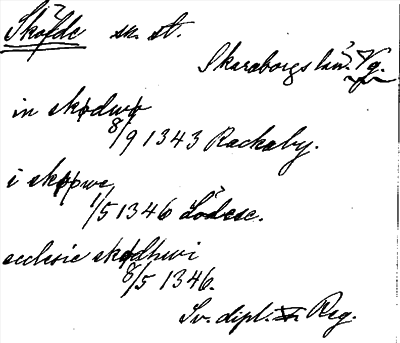 Sköfde sn. st.
Skaraborgs län. Vg.
in skødwø
8/9 1343 Rackaby.
i skøpwe
1/5 1346 Lödese.
ecclesie skødhwi
8/5 1346.
Sv. dipl. Reg.